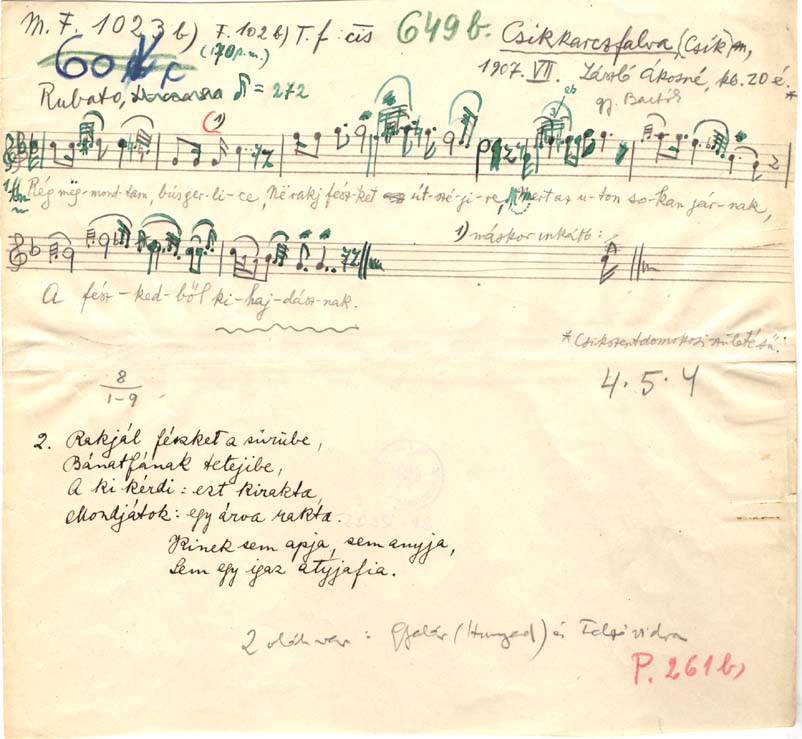 M. F. 1023 b) F. 102 b) T. f : cis 649 b. Csikkarcsfalva, (Csík) m,
(170 p.m.) 1907. VII. László Ákosné, kb. 20 é. *
Rubato, = 272 gj. Bartók
1)
3
Rég meg-mond-tam, bús ger-li-ce, Në rakj fész-ket út-szé-ji-re, Mert az u-ton so-kan jár-nak,
1) máskor inkább:
A fész-ked-ből ki-haj-dász-nak.
* Csikszentdomokosi születésű.
8
1-9
4. 5. 4
2. Rakjál fészket a sürübe,
Bánatfának tetejibe,
A ki kérdi : ezt kirakta,
Mondjátok : egy árva rakta.
Kinek sem apja, sem anyja,
Sem egy igaz atyjafia.
2 oláh var : Gyalár (Hunyad) és Felsővidra
P. 261 b)